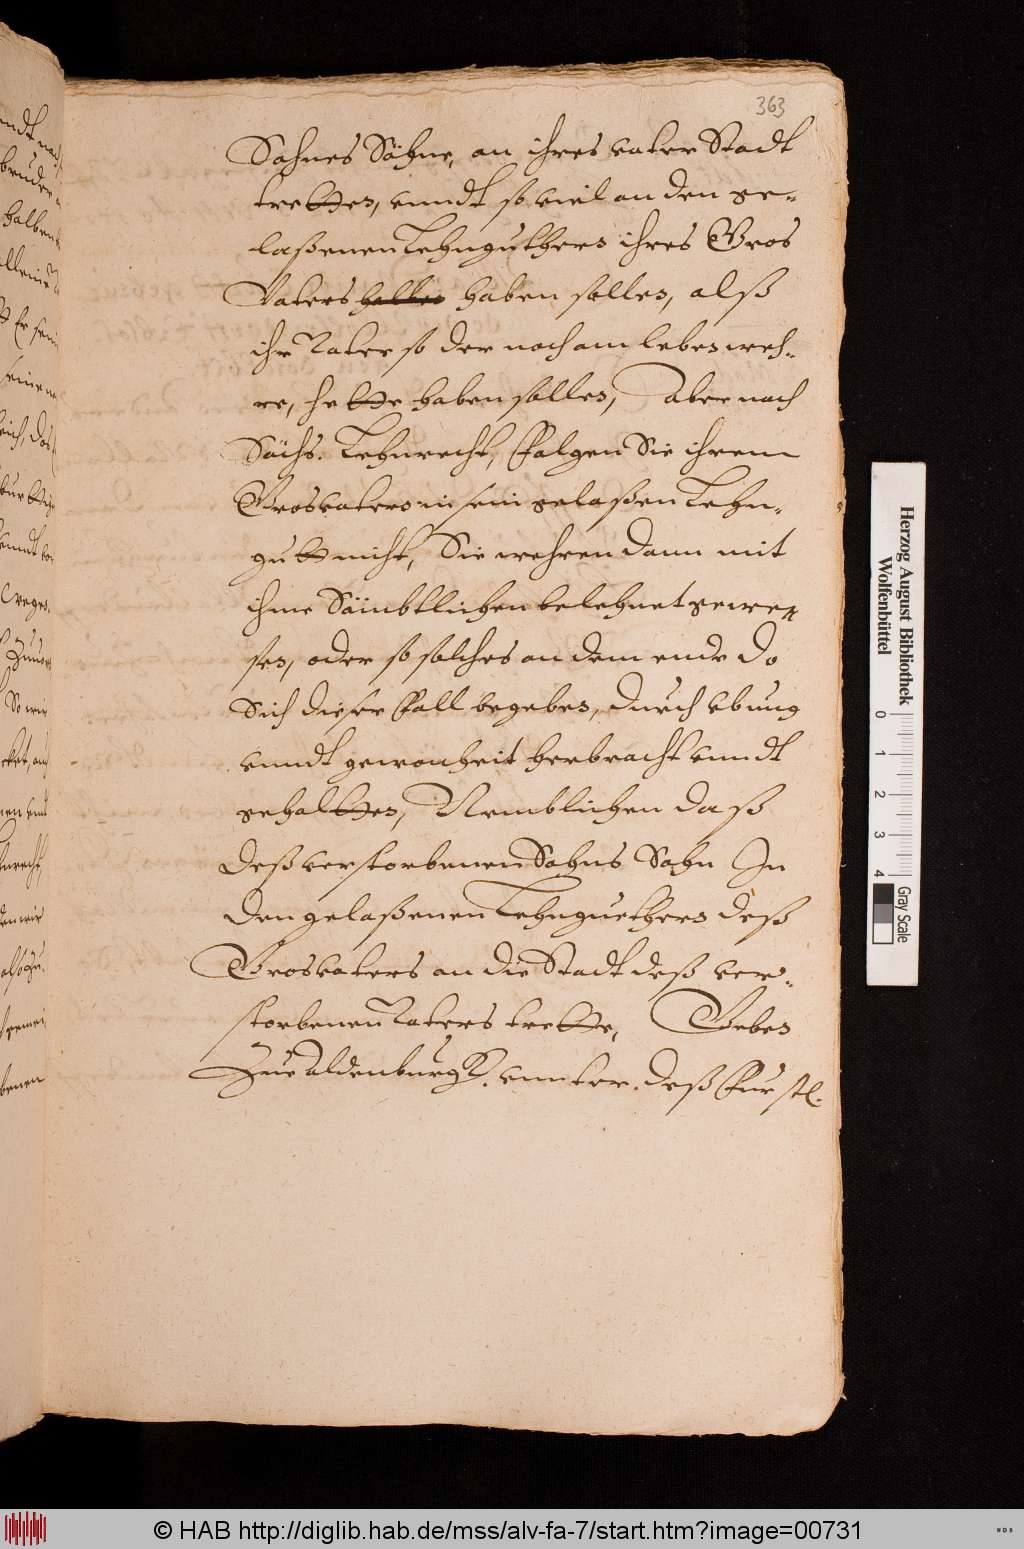 363
Sohnes Söhne, an ihres vater Stadt
tretten, vnndt so viel an den ge-
laßenen Lehnguthern ihres Gros
Vaters haben sollen, alß
ihr Vater so der noch am leben weh-
re, hette haben sollen, Aber nach
Sächs. Lehnrecht, Folgen Sie ihrem
Grosvatern in sein gelaßen Lehn-
gutt nicht, Sie wehren dann mit
ihme Sämbtlichen belehnet gewe-
sen, oder so solches an dem ende do
Sich dieser Fall begeben, durch vbung
vnndt gewonheit herbracht vnndt
gehalten, Nemblichen daß
deß verstorbenen Sohns Sohn In
den gelaßenen Lehnguethern deß
Grosvaters an die Stadt deß ver-
storbenen Vaters trette, Geben
Zue Aldenburgk. vnnter. deß Fürstl.
Herzog August Bibliothek
Wolfenbüttel
0 1 2 3 4
Gray Scale
© HAB http://diglib.hab.de/mss/alv-fa-7/start.htm?image=00731